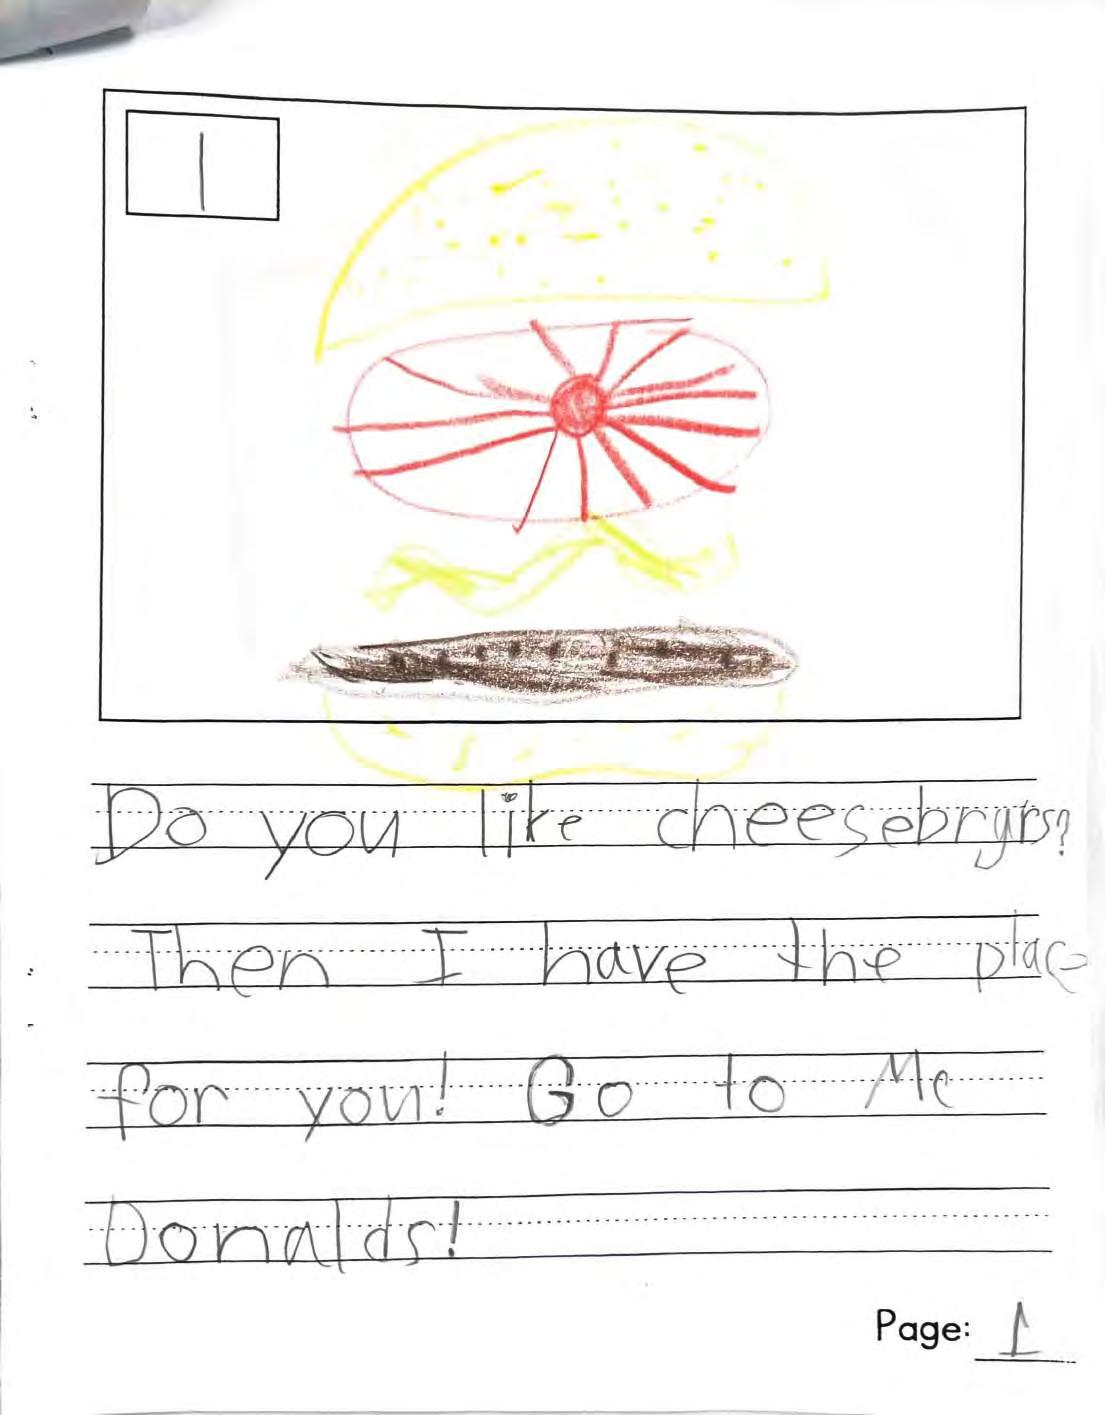 1
Do you like cheesebrgrs?
Then I have the place
for you! Go to Mc
Donalds!
Page: 1